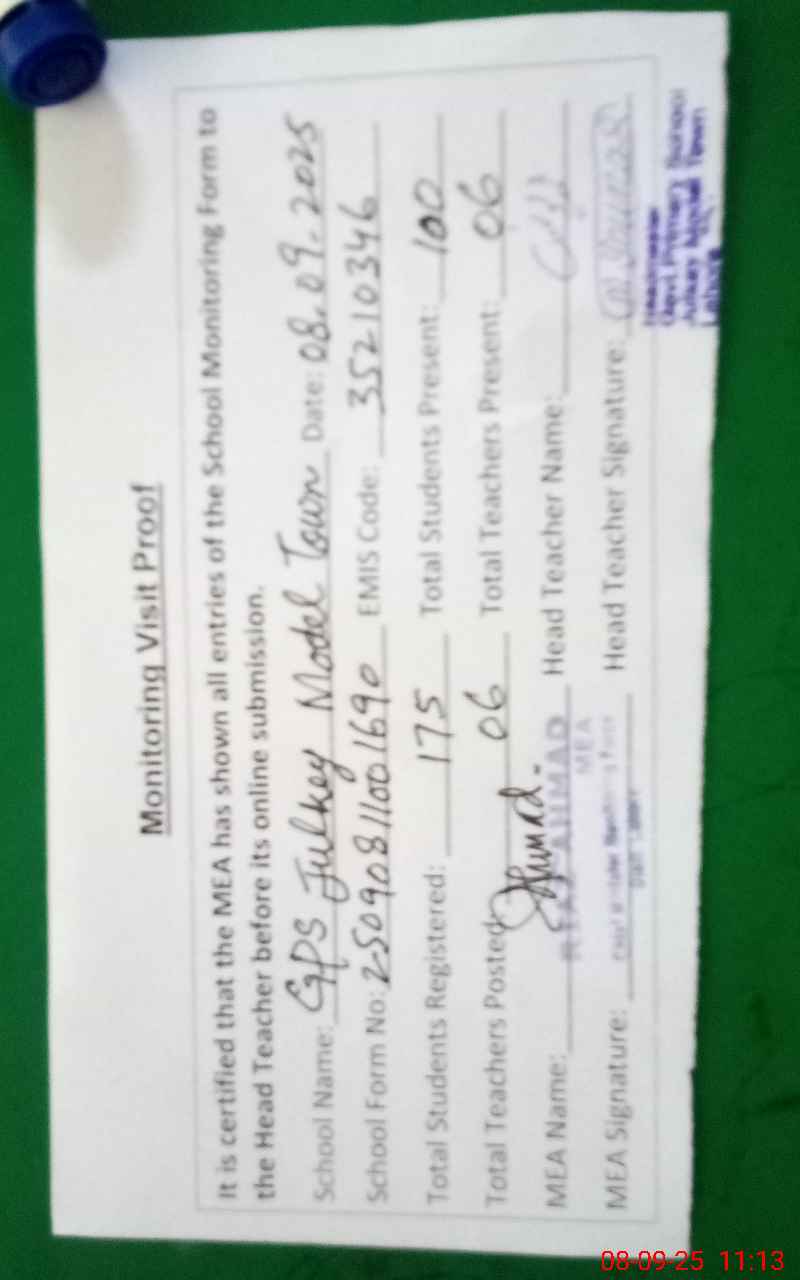 Monitoring Visit Proof
It is certified that the MEA has shown all entries of the School Monitoring Form to
the Head Teacher before its online submission.
School Name: GPS Julkey Model Town Date: 08.09.2025
School Form No: 25090811001690 EMIS Code: 35210346
Total Students Registered: 175 Total Students Present: 100
Total Teachers Posted: 06 Total Teachers Present: 06
MEA Name: AHMAD Head Teacher Name:
MEA
MEA Signature: Head Teacher Signature:
Govt Primary School
Julkey Model Town
Lahore
08-09-25 11:13